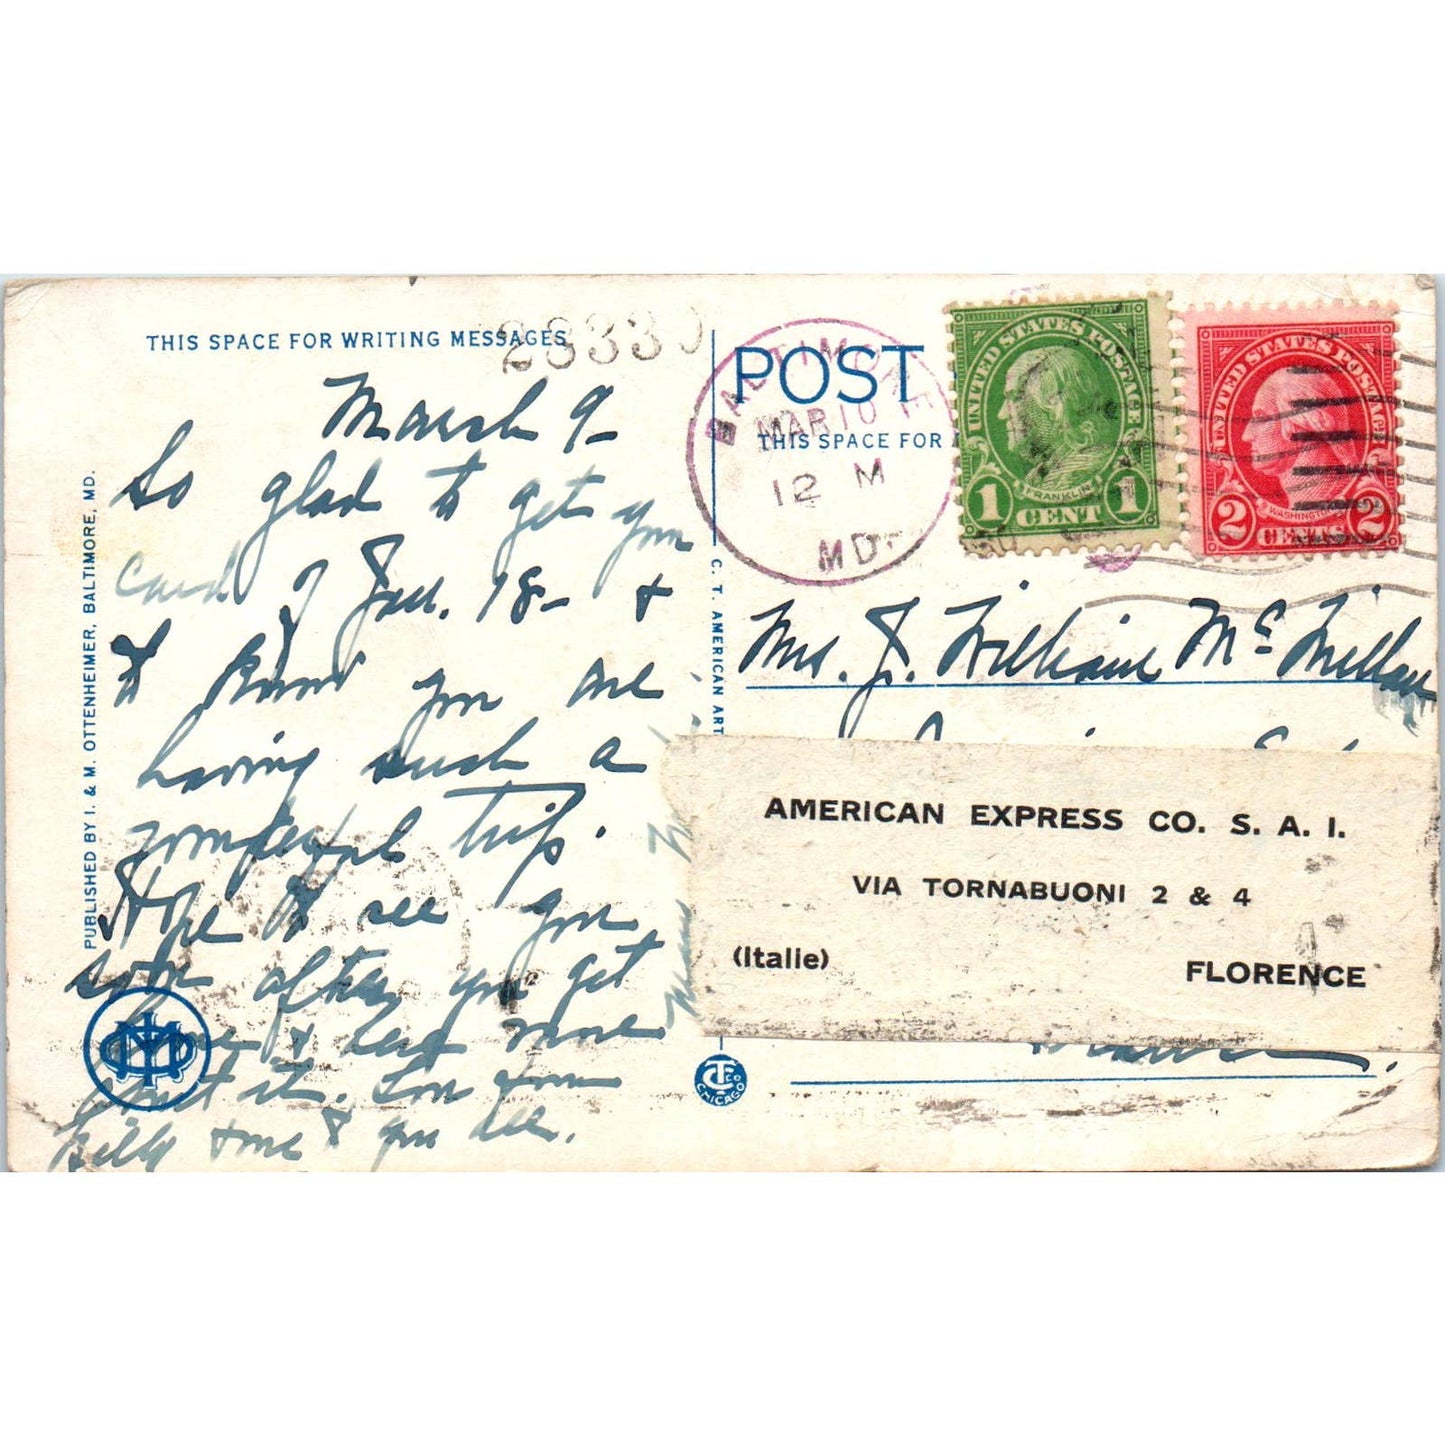 THIS SPACE FOR WRITING MESSAGES
28330
March 9 -
So glad to get your
card of Jan. 18 - +
to know you are
having such a
wonderful trip.
Hope to see you
soon after you get
home & hear more
about it. Love from
Billy + me to you all.
PUBLISHED BY I. & M. OTTENHEIMER, BALTIMORE, MD.
C. T. AMERICAN ART
C T CO
CHICAGO
POST
THIS SPACE FOR
BALTIMORE
MAR 10
12 M
MD.
UNITED STATES POSTAGE
FRANKLIN
1 CENT 1
UNITED STATES POSTAGE
WASHINGTON
2 CENTS 2
Mrs. J. William McMillan
AMERICAN EXPRESS CO. S. A. I.
VIA TORNABUONI 2 & 4
(Italie)
FLORENCE